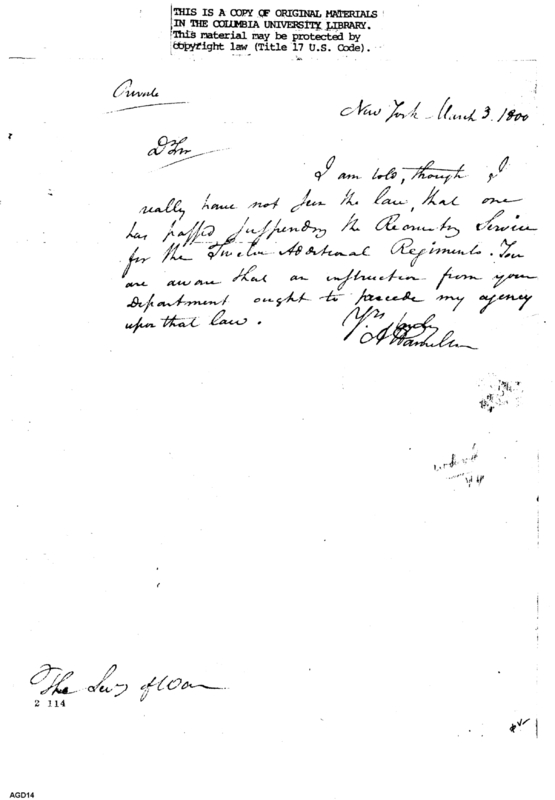 THIS IS A COPY OF ORIGINAL MATERIALS
IN THE COLUMBIA UNIVERSITY LIBRARY.
This material may be protected by
copyright law (Title 17 U.S. Code).
Private
New York March 3. 1800
D Sir
I am told, though I
really have not seen the law, that one
has passed suspending the Recruiting Service
for the Twelve Additional Regiments. You
are aware that an instruction from your
Department ought to precede my agency
upon that law.
Yrs truly
A Hamilton
The Secy of War
2 114
AGD14